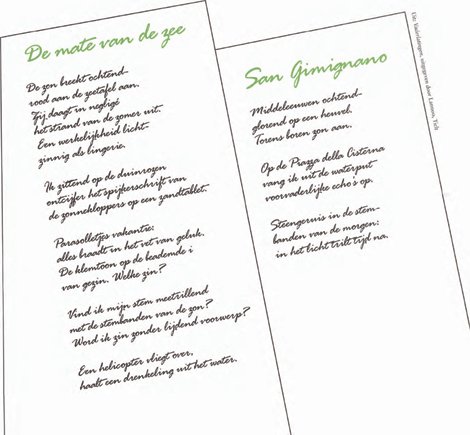 De mate van de zee
De zon breekt ochtend-
rood aan de zeetafel aan.
Zij daagt in negligé
het strand van de zomer uit.
Een werkelijkheid licht-
zinnig als lingerie.
Ik zittend op de duinrozen
ontcijfer het spijkerschrift van
de zonnekloppers op een zandtablet.
Parasolletjes vakantie:
alles braadt in het vet van geluk.
De klemtoon op de beademde i
van gezin. Welke zin?
Vind ik mijn stem meetrillend
met de stembanden van de zon?
Word ik zin zonder lijdend voorwerp?
Een helicopter vliegt over,
haalt een drenkeling uit het water.
San Gimignano
Middeleeuwen ochtend-
glorend op een heuvel.
Torens boren zon aan.
Op de Piazza della Cisterna
vang ik uit de waterput
voorvaderlijke echo's op.
Steengeruis in de stem-
banden van de morgen:
in het licht trilt tijd na.
uitgegeven door